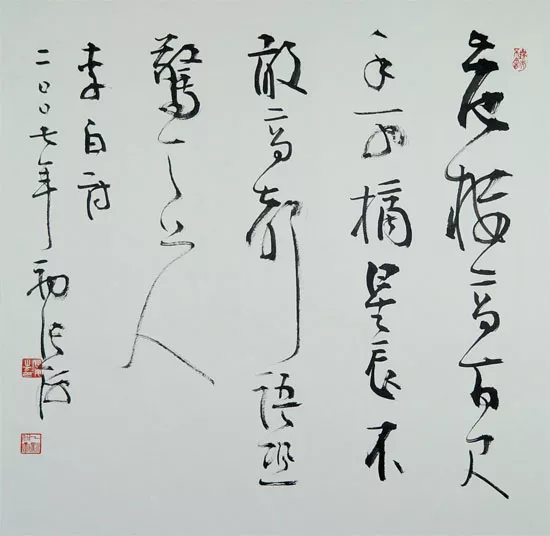 危樓高百尺
手可摘星辰不
敢高聲語恐
驚天上人
李白詩
二〇〇七年初張海